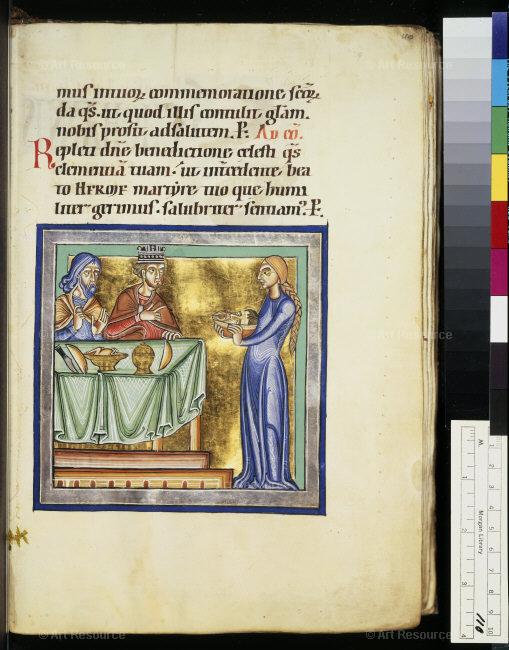 mus intuoꝝ commemoratione scōꝝ.
da q̄s. ut quod illis contulit glām.
nobis prosit ad salutem. P. AD CŌ.
Repleti dn̄e benedictione celesti q̄s
clementiā tuam. ut intercedente bea
to martyre tuo que humi
liter gerimus. salubriter sentiam᷒. P.
© Art Resource
© Art Resource
© Art Resource
© Art Resource
Morgan Library
110